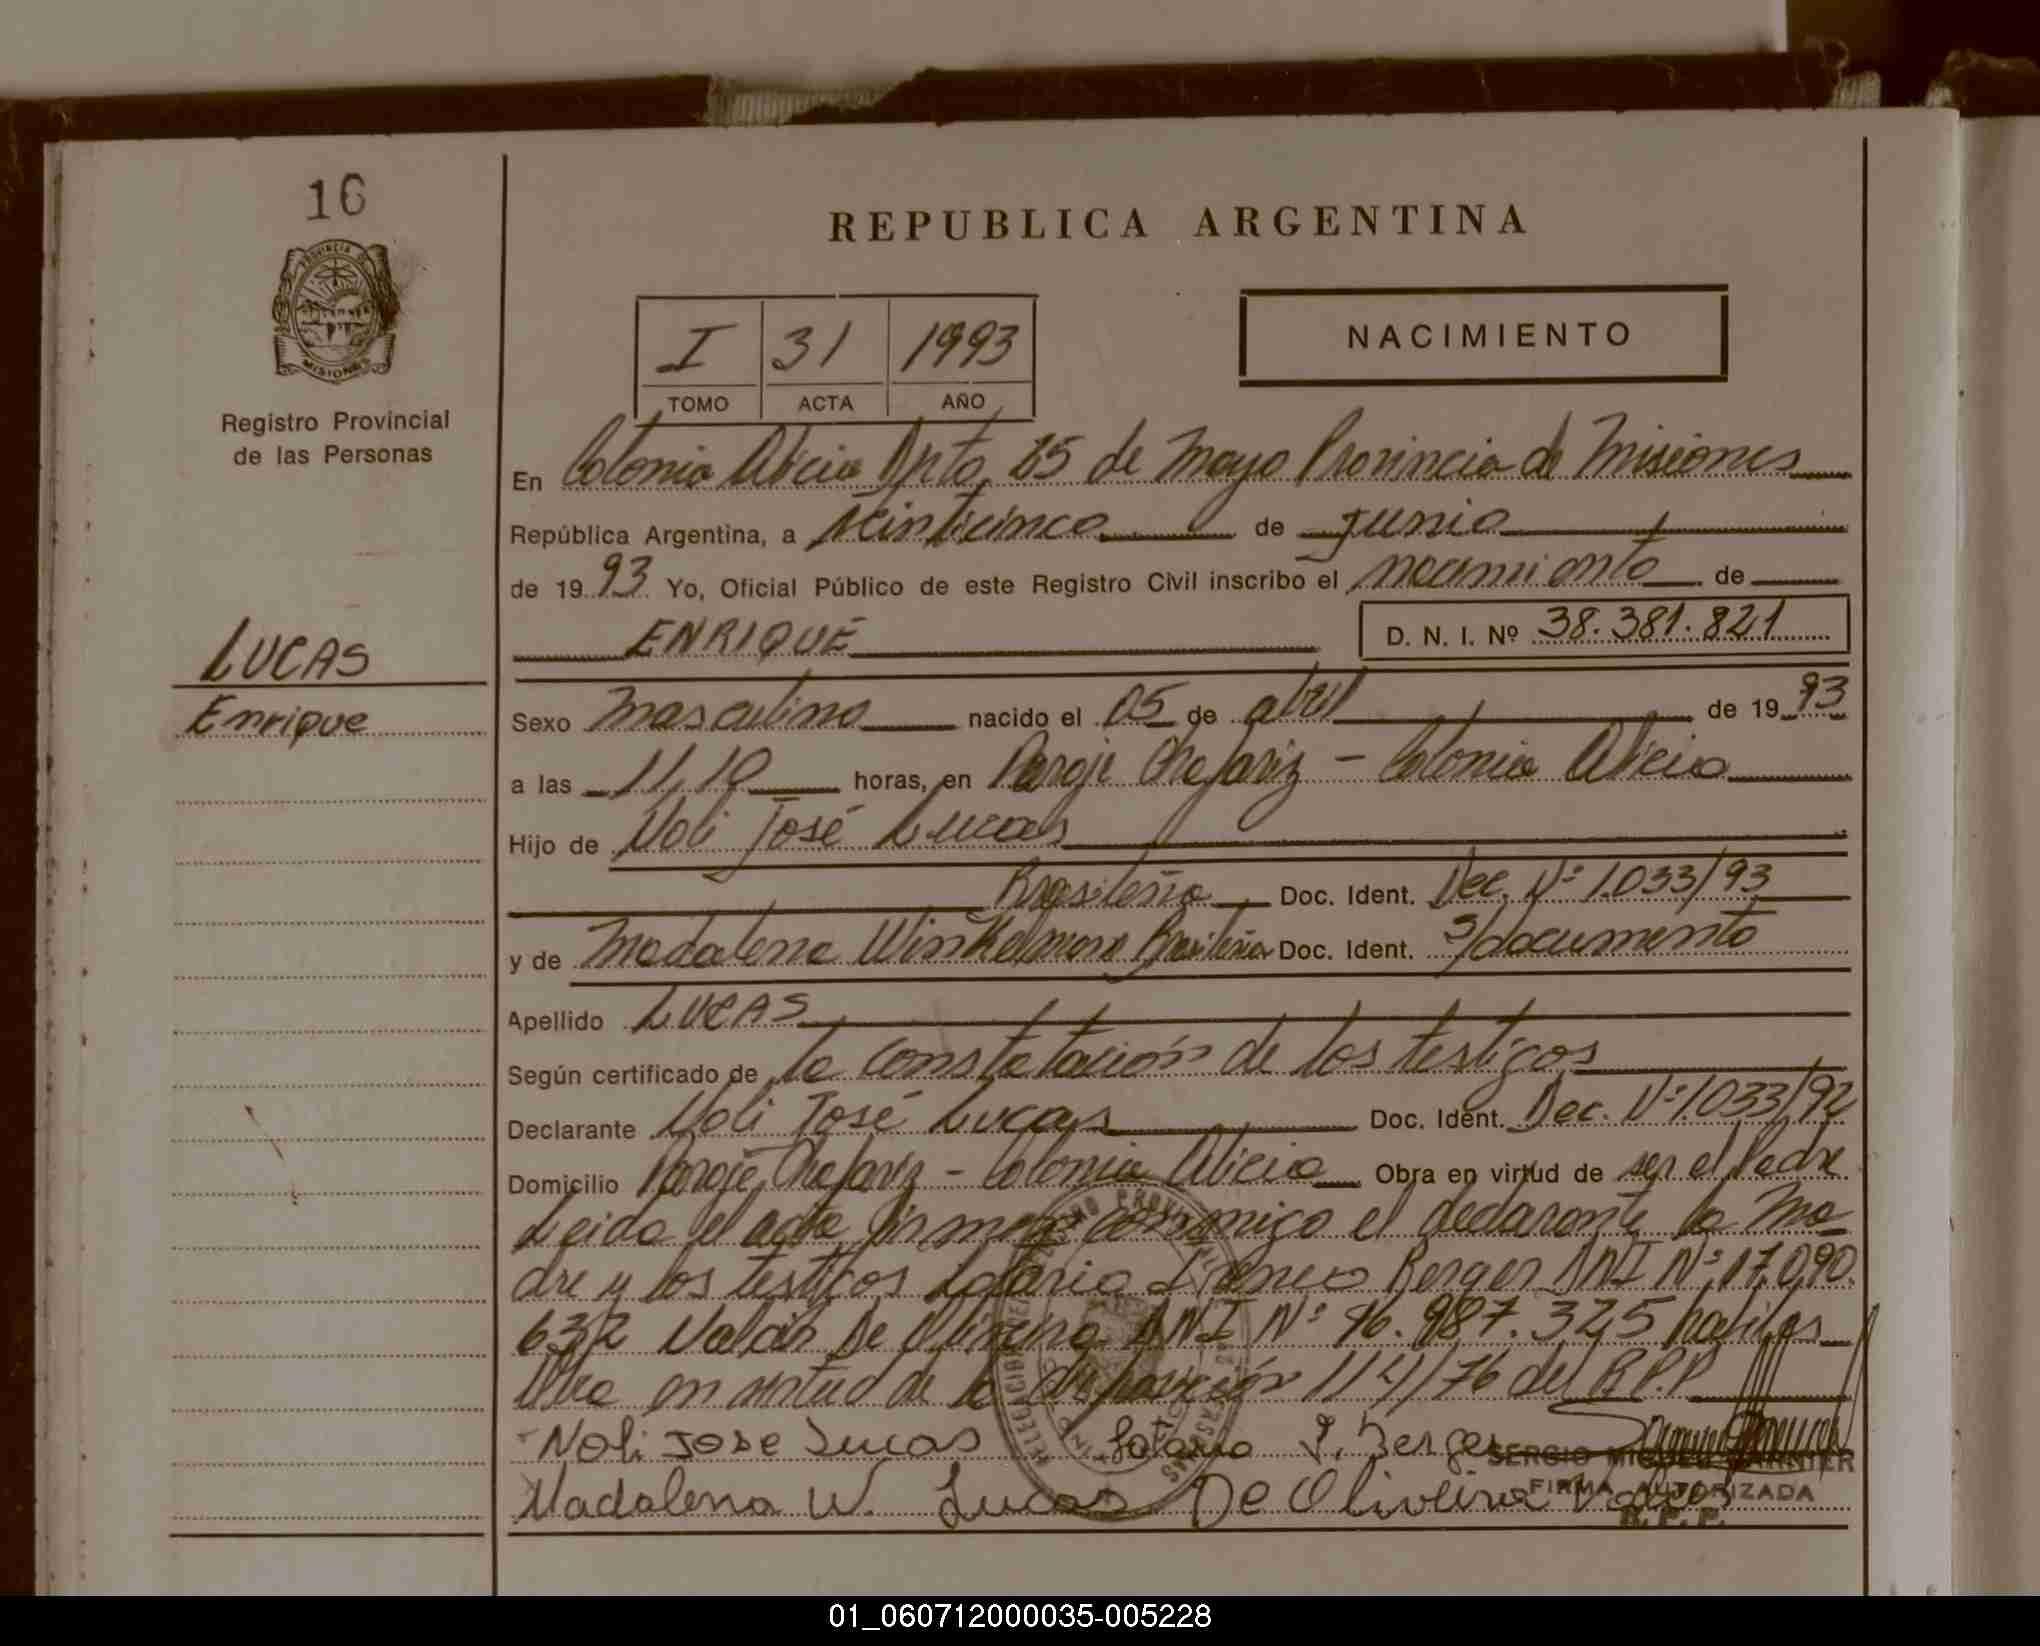 16
REPUBLICA ARGENTINA
PROVINCIA DE
MISIONES
I 31 1993
TOMO ACTA AÑO
NACIMIENTO
Registro Provincial
de las Personas
En Colonia Alicia Dpto. 25 de Mayo Provincia de Misiones
República Argentina, a Veinticinco de Junio
de 1993 Yo, Oficial Público de este Registro Civil inscribo el nacimiento de
ENRIQUE D. N. I. Nº 38.381.821
LUCAS
Enrique
Sexo Masculino nacido el 05 de abril de 1993
a las 11,10 horas, en Paraje Chafariz - Colonia Alicia
Hijo de Noli José Lucas
Brasileña Doc. Ident. Dec. Nº 1.033/93
y de Madalena Winkelmann Brasileña Doc. Ident. s/documento
Apellido LUCAS
Según certificado de la constatación de los testigos
Declarante Noli José Lucas Doc. Ident. Dec. Nº 1.033/92
Domicilio Paraje Chafariz - Colonia Alicia Obra en virtud de ser el Padre
Leida el acta firman conmigo el declarante la Ma
dre y los testigos Berger DNI Nº 17.090.
632 De Oliveira DNI Nº 96.987.325 habiles
Obra en virtud de la disposición 114/76 del R.P.P
Noli Jose Lucas J. Berger
SERGIO MIGUEL
Madalena W. Lucas De Oliveira
FIRMA AUTORIZADA
R. P. P.
01_060712000035-005228